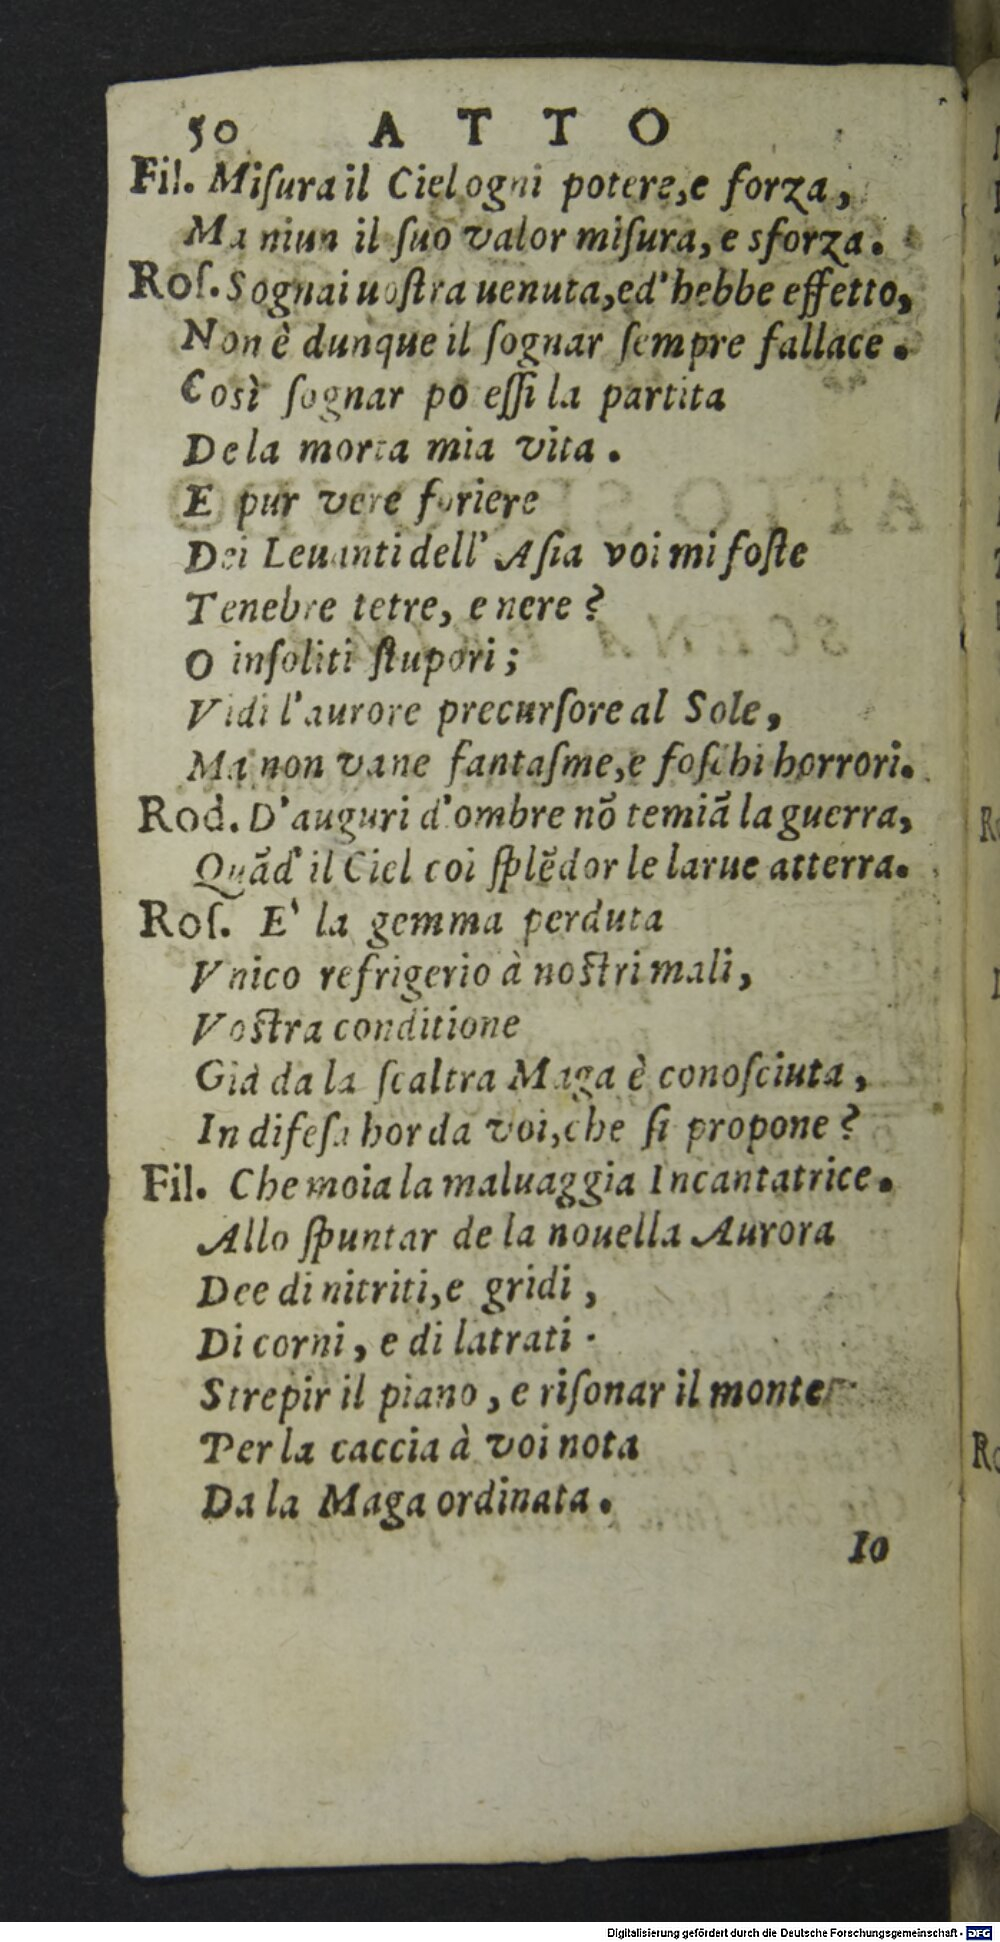 50 ATTO
Fil. Miſura il Ciel ogni potere, e forza,
Ma niun il ſuo valor miſura, e sforza.
Roſ. Sognai uoſtra uenuta, ed' hebbe effetto,
Non è dunque il ſognar ſempre fallace.
Così ſognar po eſſi la partita
De la morta mia vita.
E pur vere foriere
Dei Leuanti dell' Aſia voi mi foſte
Tenebre tetre, e nere?
O inſoliti ſtupori;
Vidi l'aurore precurſore al Sole,
Ma non vane fantaſme, e foſchi horrori.
Rod. D'auguri d'ombre nõ temiã la guerra,
Quãd' il Ciel coi ſplẽdor le larue atterra.
Roſ. E' la gemma perduta
Vnico refrigerio à noſtri mali,
Voſtra conditione
Già da la ſcaltra Maga è conoſciuta,
In difeſa hor da voi, che ſi propone?
Fil. Che moia la maluaggia Incantatrice.
Allo ſpuntar de la nouella Aurora
Dee di nitriti, e gridi,
Di corni, e di latrati.
Strepir il piano, e riſonar il monte
Per la caccia à voi nota
Da la Maga ordinata.
Io
Digitalisierung gefördert durch die Deutsche Forschungsgemeinschaft - DFG